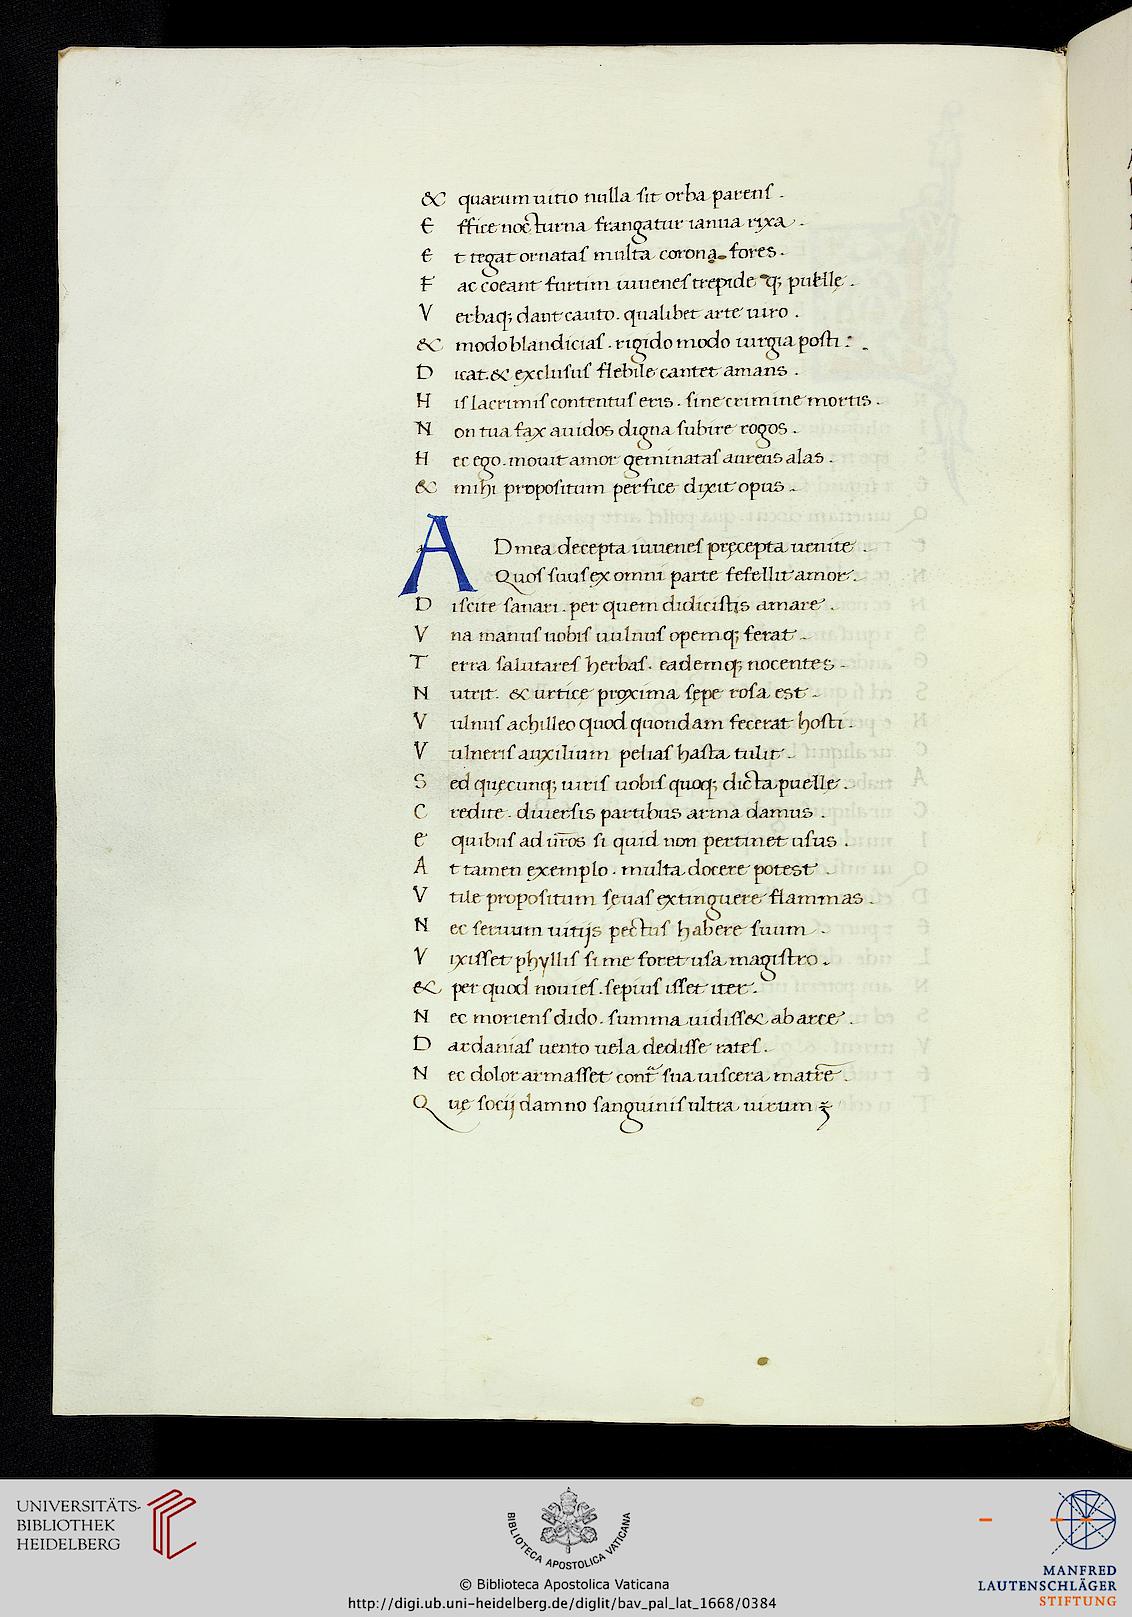 & quarum uitio nulla sit orba parens .
E ffice nocturna frangatur ianua rixa .
E t tegat ornatas multa corona fores .
F ac coeant furtim iuuenes trepide q; puelle .
V erbaq; dant cauto . qualibet arte uiro .
& modo blandicias . rigido modo iurgia posti .
D icat . & exclusus flebile cantet amans .
H is lacrimis contentus eris . sine crimine mortis .
N on tua fax auidos digna subire rogos .
H ec ego . mouit amor geminatas aureus alas .
& mihi propositum perfice dixit opus .
A D mea decepta iuuenes pręcepta uenite .
Quos suus ex omni parte fefellit amor .
D iscite sanari . per quem didicistis amare .
V na manus uobis uulnus opemq; ferat .
T erra salutares herbas . eademq; nocentes .
N utrit . & urticę proxima sępe rosa est .
V ulnus achilleo quod quondam fecerat hosti .
V ulneris auxilium pelias hasta tulit .
S ed quęcunq; uiris uobis quoq; dicta puellę .
C redite . diuersis partibus arma damus .
E quibus ad ur̄os si quid non pertinet usus .
A t tamen exemplo . multa docere potest .
V tile propositum sęuas extinguere flammas .
N ec seruum uitijs pectus habere suum .
V ixisset phyllis si me foret usa magistro .
& per quod nouies . sepius isset iter .
N ec moriens dido . summa uidiss& ab arce .
D ardanias uento uela dedisse rates .
N ec dolor armasset cont̄ sua uiscera matrē .
Q uę socij damno sanguinis ultra uirum ē
UNIVERSITÄTS-
BIBLIOTHEK
HEIDELBERG
BIBLIOTECA APOSTOLICA VATICANA
MANFRED
LAUTENSCHLÄGER
STIFTUNG
© Biblioteca Apostolica Vaticana
http://digi.ub.uni-heidelberg.de/diglit/bav_pal_lat_1668/0384